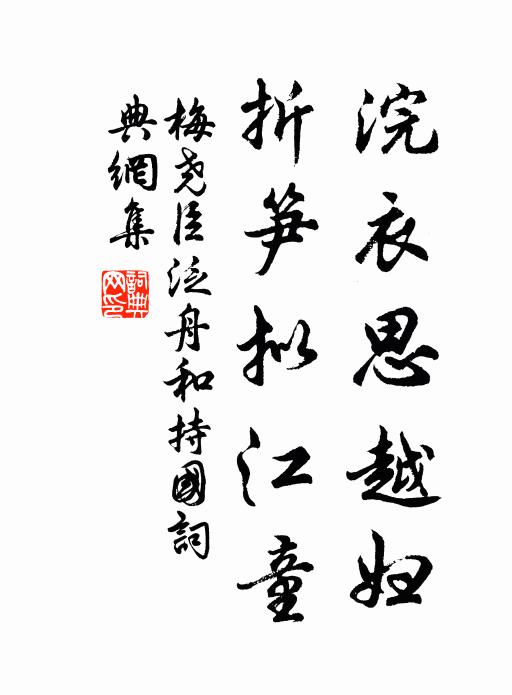 浣衣思越妇
折笋拟江童
梅尧臣泛舟和持國詞
典網集
詞典网印